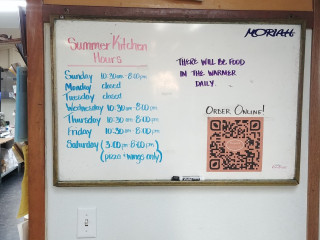 Summer Kitchen
Hours
Sunday 10:30 am - 8:00 pm
Monday closed
Tuesday closed
Wednesday 10:30 am - 8:00 pm
Thursday 10:30 am - 8:00 pm
Friday 10:30 am - 8:00 pm
Saturday (3:00 pm - 8:00 pm)
(pizza + wings only)
MORIAH
THERE WILL BE FOOD
IN THE WARMER
DAILY.
ORDER ONLINE!